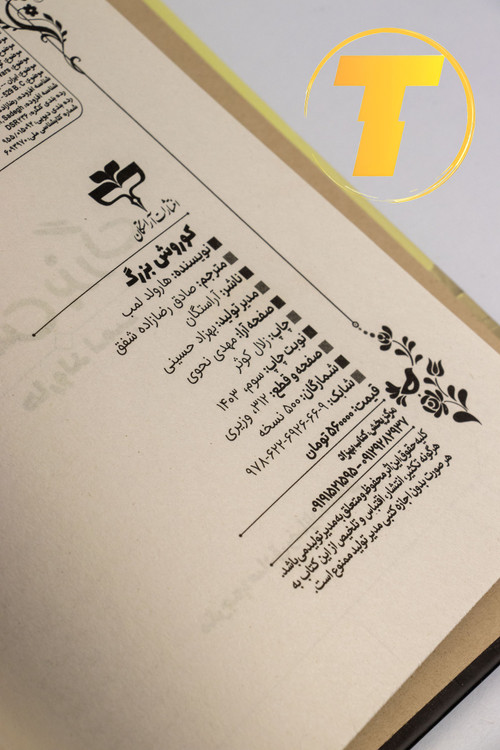 T
انتشارات آراستگان
کوروش بزرگ
نویسنده: هارولد لمب
مترجم: صادق رضازاده شفق
ناشر: آراستگان
مدیر تولید: بهزاد حسینی
صفحه آرا: مهدی نحوی
چاپ: زلال کوثر
نوبت چاپ: سوم، ۱۴۰۳
صفحه و قطع: ۳۱۲، وزیری
شمارگان: ۵۰۰ نسخه
شابک: ۹-۶۶-۶۹۲۶-۶۲۲-۹۷۸
قیمت: ۵۶۰۰۰۰ تومان
مرکز پخش: کتاب بهزاد
۰۹۱۹۱۵۲۱۵۹۵ - ۰۹۱۲۹۲۸۲۹۳۷
کلیه حقوق این اثر محفوظ و متعلق به مدیر تولید می‌باشد.
هرگونه تکثیر، انتشار، اقتباس و تلخیص از این کتاب به
هر صورت بدون اجازه کتبی مدیر تولید ممنوع است.